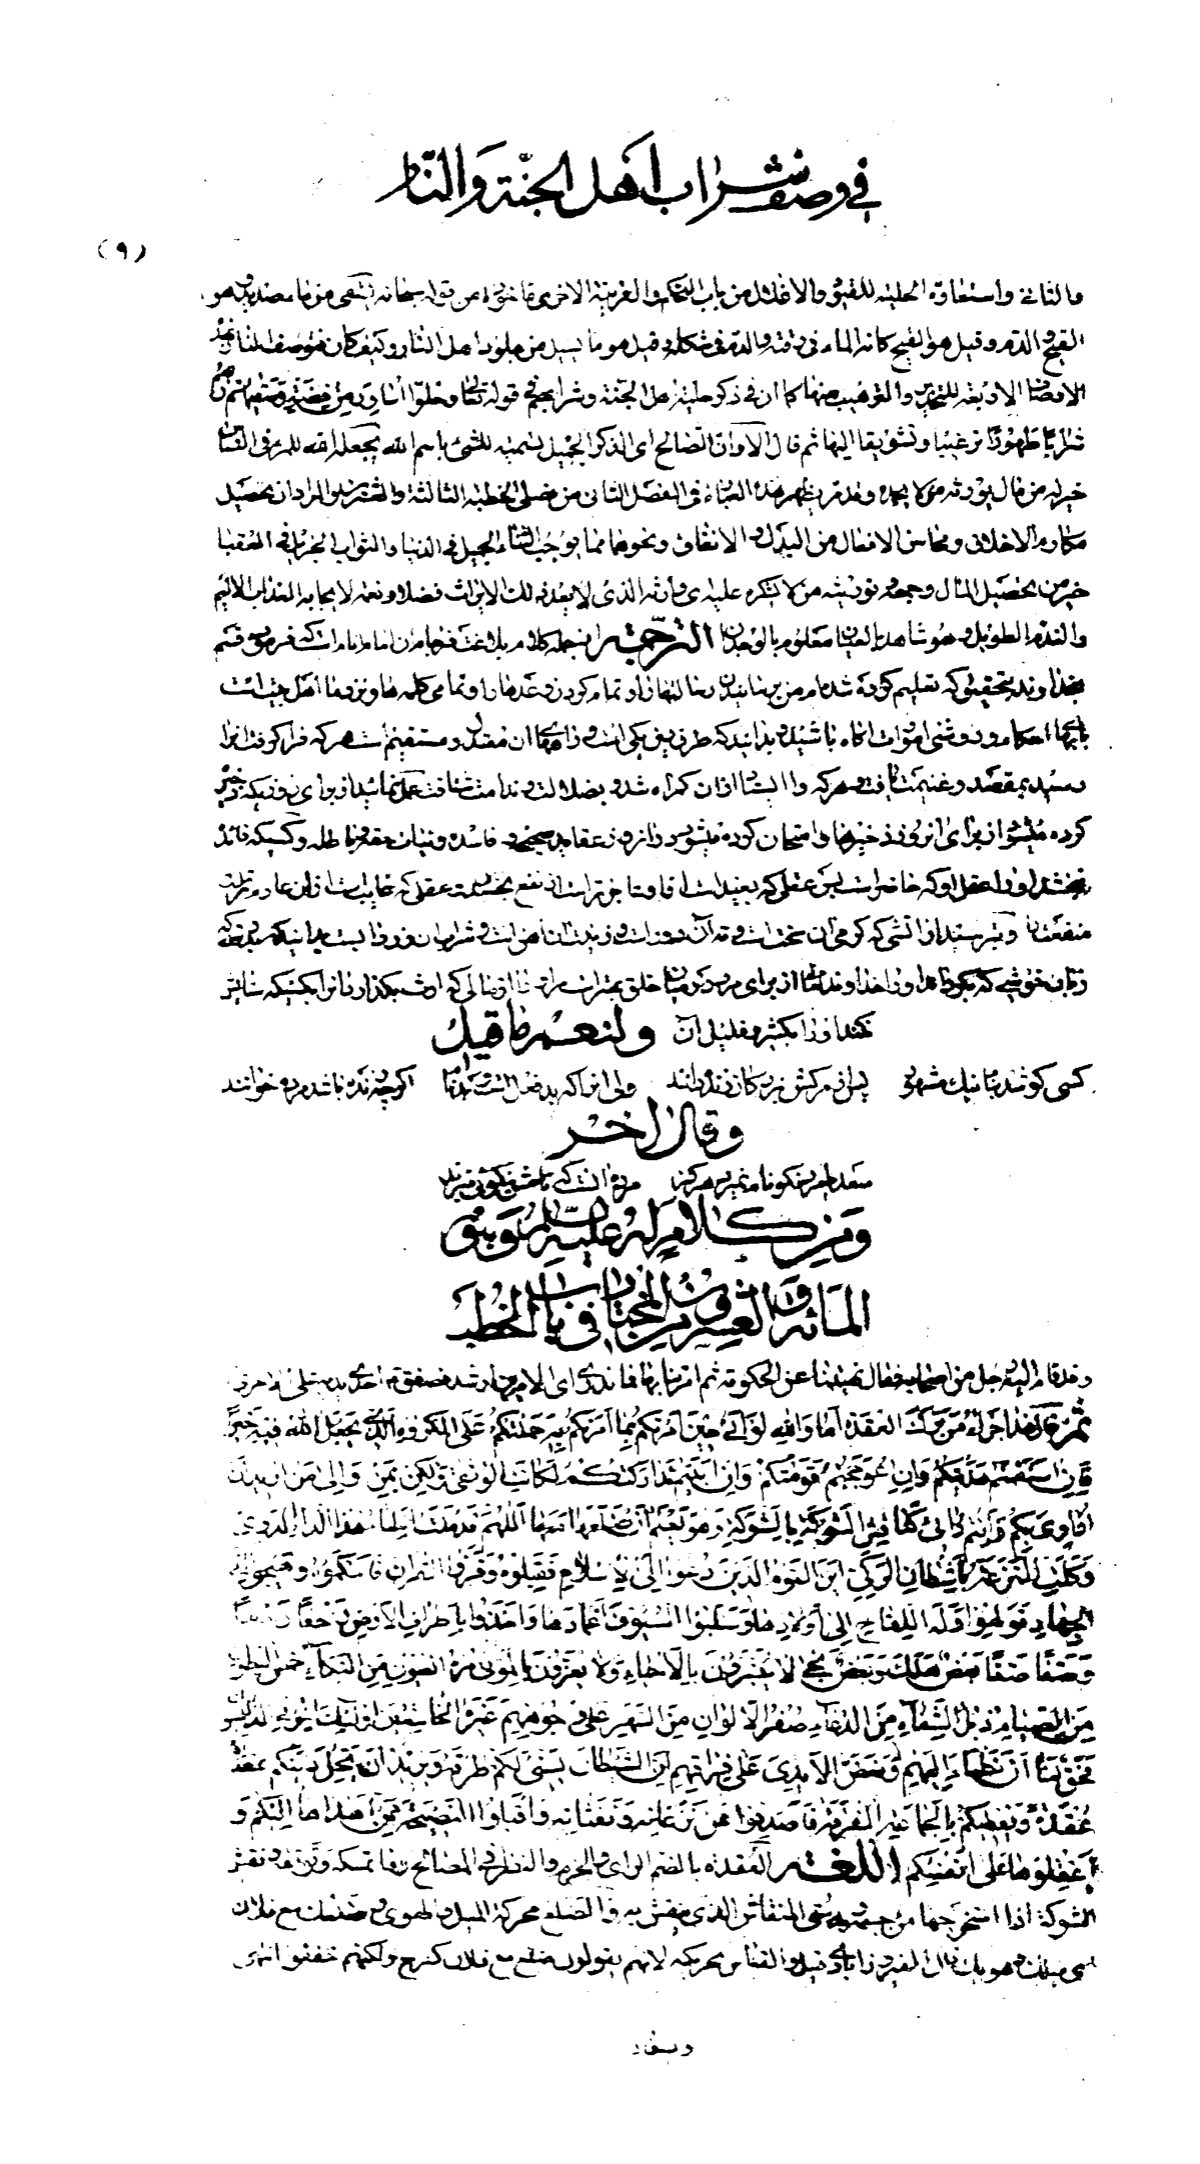 في وصف شراب أهل الجنة والنار
(٩)
والثانى واستعارة الحلية للقيود والاغلال من باب التهكم والقرينة الاخرى مأخوذة من قوله سبحانه يسقى من ماء صديد وهو
القيح والدم وقيل هو القيح كانه الماء فى رقته والدم فى شكله وقيل هو ما يسيل من جلود اهل النار وكيف كان فوصف النار بهذه
الاوصاف الاربعة للتحذير والترهيب منها كما ان فى ذكر حلية اهل الجنة وشرابهم فى قوله تعالى وحلوا أساور من فضة وسقيهم ربهم
شرابا طهورا ترغيبا وتشويقا اليها ثم قال الا وان اللسان الصالح اى الذكر الجميل يجعله الله للمرء فى الناس
خير له من مال يورثه من لا يحمده وقد مر فى الفصل الثانى من الخطبة الثالثة والعشرين المراد ان تحصيل
مكارم الاخلاق ومحاسن الافعال من البذل والانفاق ونحوهما مما يوجب الثناء الجميل فى الدنيا والثواب الجزيل فى العقبا
خير من تحصيل المال وجمعه وتوريثه من لا يشكره عليه
والندم الطويل وهو مشاهد بالعيان معلوم بالوجدان الترجمة از جمله كلام بلاغت فرجام آن امام انام است كه فرموده قسم
بخدا وند بتحقيق كه تعليم كرده شده ام من برسانيدن رسالتها را وتمام كردن وعدها را وتمامى كلمه ها ونزد ما اهل بيت است
بابهاى احكام وروشنى امور آگاه باشيد وبدانيد كه طرق دين يكى است وراههاى آن معتدل ومستقيم است هر كه فرا گرفت آنرا
رسيد بمقصد وغنيمت يافت وهر كه وا ايستاد از آن گمراه شد وبضلالت وندامت شتافت عمل نمائيد از براى روزيكه ذخيره
كرده ميشود از براى آن روز ذخيرها وامتحان كرده ميشود در آن روز عقايد صحيحه وفاسده ونيات حقه وباطله وكسيكه فائده
نبخشد او را عقل او كه حاضر است پس عقلى كه بعيد است از او عاجزتر است از نفع بخشيدن وعقلى كه غايب است از آن عادم تر است
منفعت را وبترسيد از آتشى كه گرمى آن سخت است وته آن دور است وزينت آن آهن است وشراب آن زرداب است بدانيد كه بدرستيكه
زبان خوشى كه بگرداند او را خداوند متعال از براى مرد در ميان خلق بهتر است مر او را از مالى كه ارث بگذارد آنرا بكسيكه ستايش
نكند او را بكثير وقليل آن ولنعم ما قيل
كسى كو شد بنام نيك مشهور پس از مرگش بزرگان زنده دانند ولى آنرا كه بد فعل است وبدنام اگرچه زنده باشد مرده خوانند
وقال آخر
سعديا مرد نكونام نميرد هرگز مرده آنست كه نامش بنكوئى نبرند
ومن كلام له عليه السلام وهو
المائة والعشرون من المختار فى باب الخطب
وقد قام اليه رجل من اصحابه فقال نهيتنا عن الحكومة ثم امرتنا بها فما ندرى اى الامرين ارشد فصفق احدى يديه على الاخرى
ثم قال هذا جزاء من ترك العقدة أما والله لو أنى حين أمرتكم بما أمرتكم به حملتكم على المكروه الذى يجعل الله فيه خيرا
فإن استقمتم هديتكم وإن اعوججتم قومتكم وإن أبيتم تداركتكم لكانت الوثقى ولكن بمن وإلى من أريد أن
أداوى بكم وأنتم دائى كناقش الشوكة بالشوكة وهو يعلم أن ضلعها معها اللهم قد ملت أطباء هذا الداء الدوى
وكلت النزعة بأشطان الركى أين القوم الذين دعوا إلى الإسلام فقبلوه وقرؤا القران فأحكموه وهيجوا إلى
الجهاد فولهوا وله اللقاح إلى أولادها وسلبوا السيوف أغمادها وأخذوا بأطراف الأرض زحفا زحفا
وصفا صفا بعض هلك وبعض نجى لا يبشرون بالأحياء ولا يعزون بالموتى مره العيون من البكاء خمص البطون
من الصيام ذبل الشفاه من الدعاء صفر الألوان من السهر على وجوههم غبرة الخاشعين أولئك إخوانى الذاهبون
فحق لنا أن نظمأ إليهم ونعض الأيدى على فراقهم إن الشيطان يسنى لكم طرقه ويريد أن يحل دينكم عقدة
عقدة ويعطيكم بالجماعة الفرقة فاصدفوا عن نزغاته ونفثاته واقبلوا النصيحة ممن أهداها إليكم و
اعقلوها على أنفسكم اللغة العقدة بالضم الراى والحزم والنظر فى المصالح ونقش
الشوكة اذا استخرجها من جسمه وبه سمى المنقاش الذى ينقش به والضلع محركة الميل والهوى وضلعك مع فلان
اى ميلك وهواك قال الفيروزآبادى قيل والقياس تحريكه لانهم يقولون ضلع مع فلان كفرح ولكنهم خففوا انتهى
ويقال